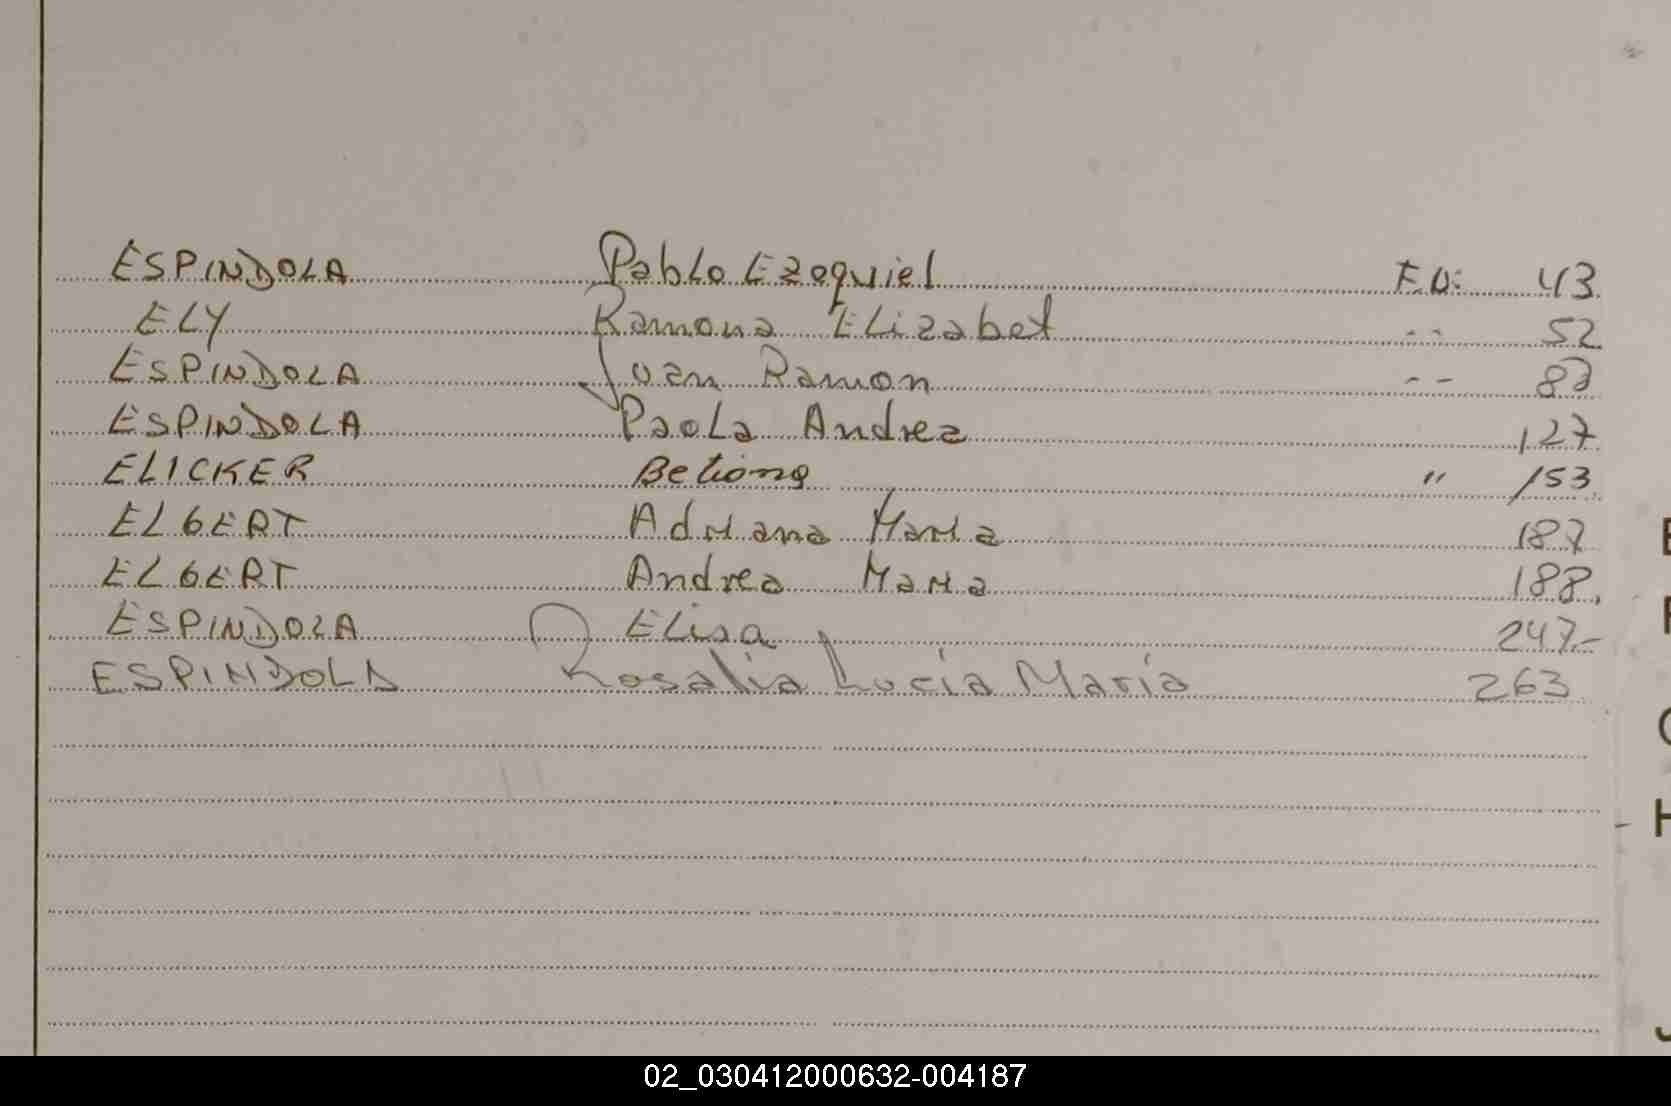 ESPINDOLA Pablo Ezequiel F.U: 43
ELY Ramona Elizabet -- 52
ESPINDOLA Juan Ramon -- 87
ESPINDOLA Paola Andrea 127
ELICKER Betiong " 153
ELGERT Adriana Maria 187
ELGERT Andrea Maria 188.
ESPINDOLA Elisa 247-
ESPINDOLA Rosalia Lucia Maria 263
E
F
G
H
J
02_030412000632-004187